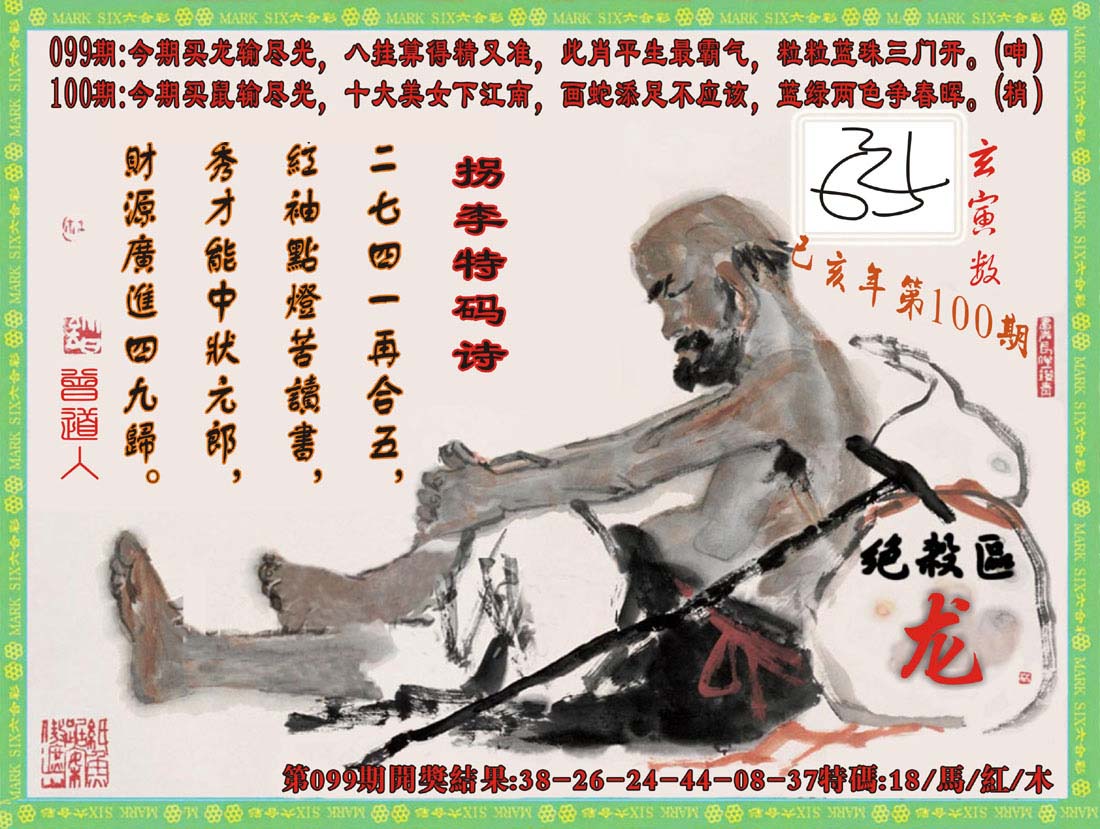 MARK SIX六合彩 MARK SIX六合彩 MARK SIX六合彩 MARK SIX六合彩 MARK SIX六合彩 MARK SIX六合彩
099期:今期买龙输尽光，八挂算得精又准，此肖平生最霸气，粒粒蓝珠三门开。(呻)
100期:今期买鼠输尽光，十大美女下江南，画蛇添足不应该，蓝绿两色争春晖。(梢)
玄寅数
己亥年第100期
拐李特码诗
二七四一再合五，
紅袖點燈苦讀書，
秀才能中狀元郎，
財源廣進四九歸。
曾道人
绝殺區
龙
第099期開獎結果:38-26-24-44-08-37特碼:18/馬/紅/木